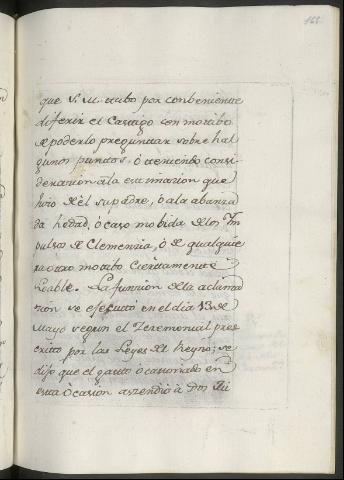 166
que S. M. tubo por conbeniente
diferir el Castigo con motibo
de poderlo preguntar sobre hal
gunos puntos, ò teniendo consi
deracion àla estimazion que
hizo de èl su padre, ò ala abanza
da hedad, ò caso mobida de los Ym
pulsos de Clemenzia, ò de qualquie
ra otro motibo Ciertamente
Loable. La funzion dela aclama
zion se efectuò en el dia 13 de
Mayo segun el Zeremonial pres
crito por las Leyes del Reyno; se
dijo que el gasto òcasionado en
esta òcasion aszendiò à Dos Mi